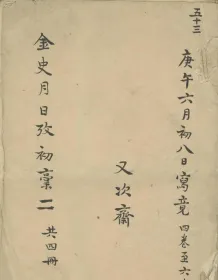 五十三
庚午六月初八日寫竟 四卷至六
又次齋
金史月日攷初稾二 共四冊